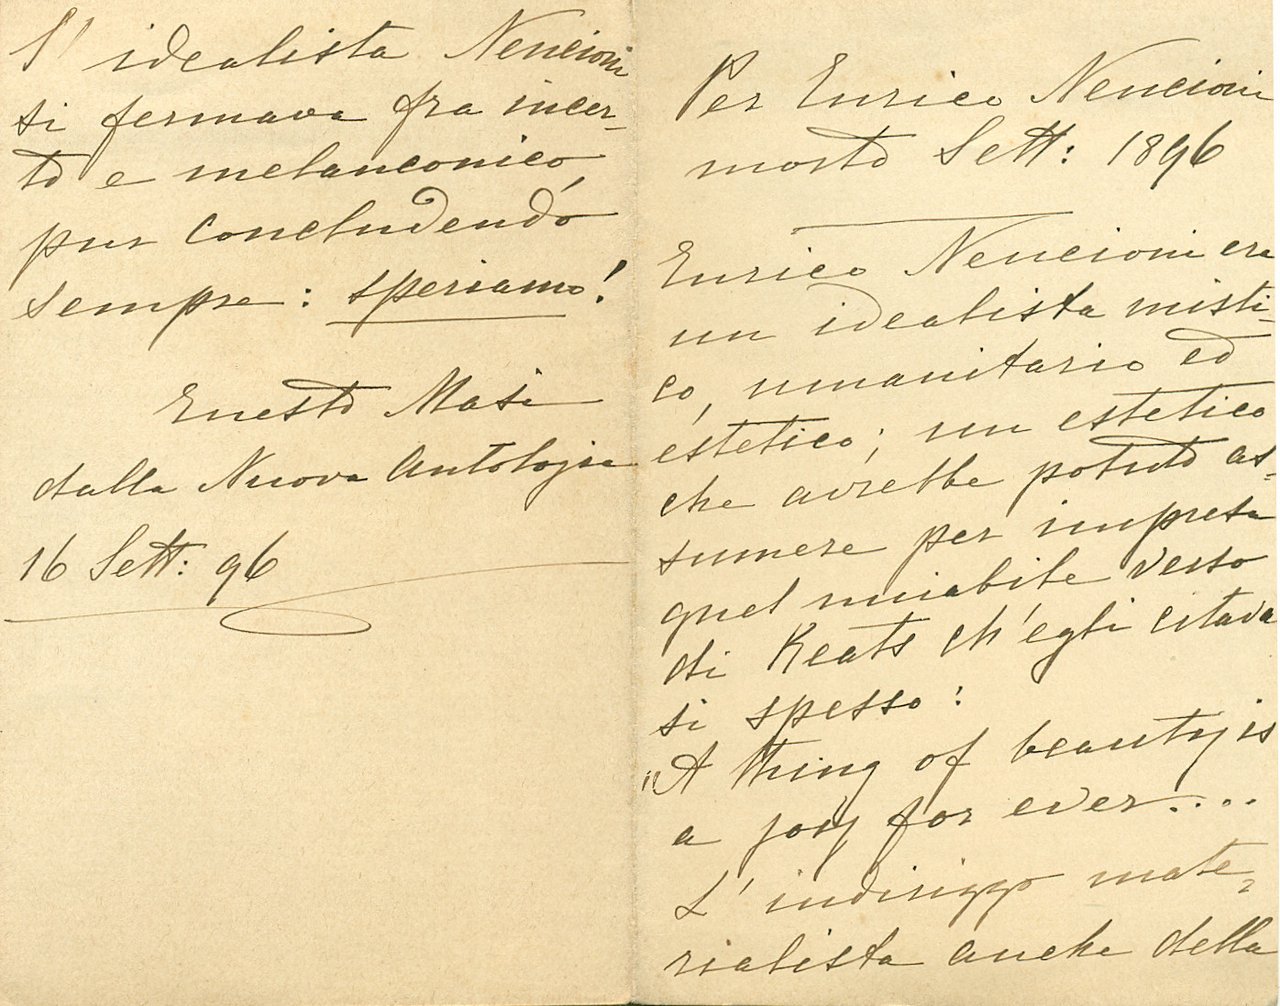 l'idealista Nencioni
si fermava fra incer-
to e melanconico,
pur concludendo
sempre: speriamo!
Enesto Masi
dalla Nuova Antologia
16 Sett: 96
Per Enrico Nencioni
morto Sett: 1896
Enrico Nencioni era
un idealista misti-
co, umanitario ed
estetico; un estetico
che avrebbe potuto as-
sumere per impresa
quel mirabile verso
di Keats ch'egli citava
si spesso:
"A thing of beauty is
a joy for ever....
L'indirizzo mate-
rialista anche della